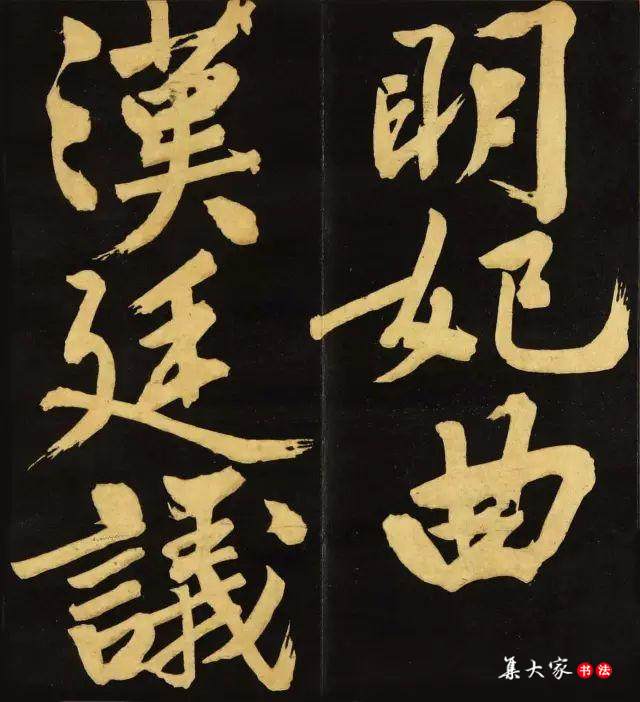 明妃曲
漢廷議
集大家书法